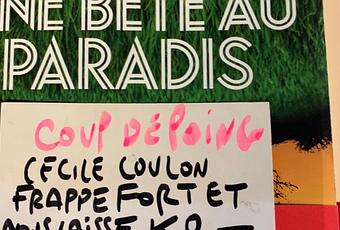 NE BÊTE AU
PARADIS
COUP DÉPOING
CECILE COULON
FRAPPE FORT ET
NOUS LAISSE K.O